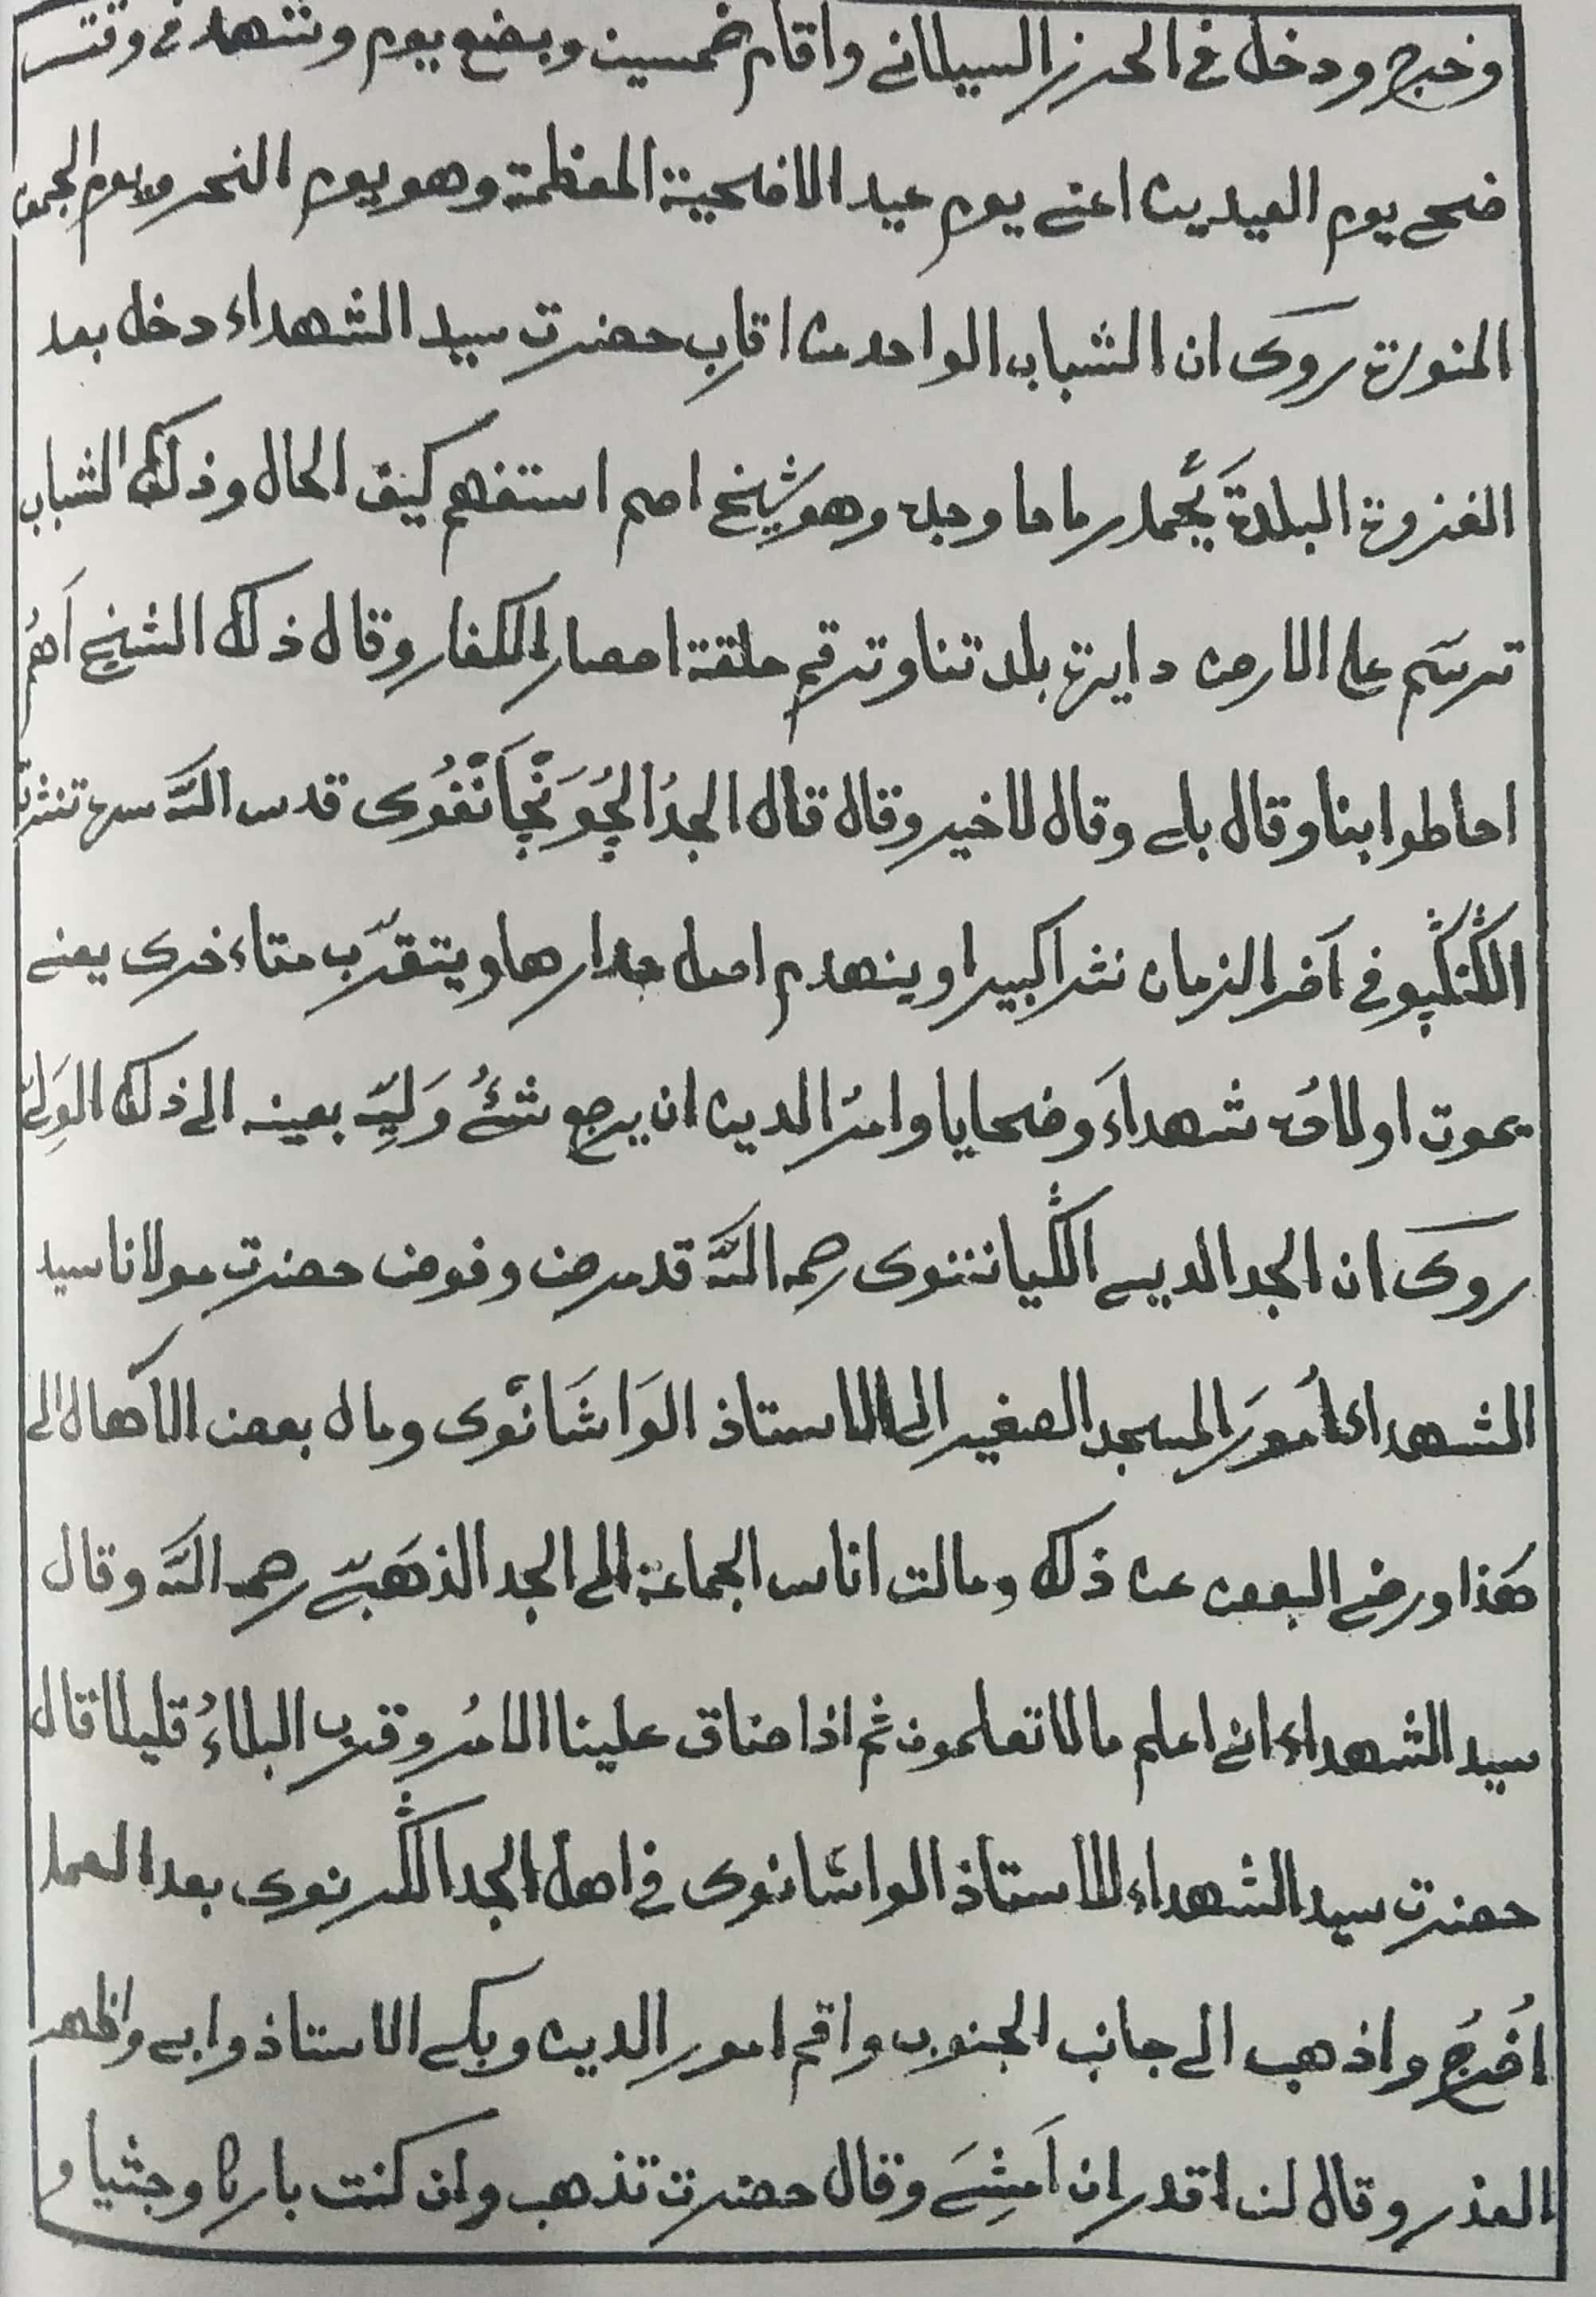 وخرج ودخل في الحرز السيلانے واقام خمسين وبضع يوم وشهد في وقت
ضحى يوم العيدين اعنے يوم عيد الاضحية المعظمة وهو يوم النحر ويوم الجمعة
المنورة روى ان الشباب الواحد من اقارب حضرت سيد الشهداء دخل بعد
الغزوة البلدةَ يحمل رماحا وجلة وهو شيخ اصم استفهم كيف الحال وذلك الشباب
ترسّم على الارض دايرة بلدتنا وترقم حلقة امصار الكفار وقال ذلك الشيخ اَهُمْ
احاطوا بنا وقال بلى وقال لاخير وقال قال الجدُ قدس اللّه سره تنثر
في آخر الزمان نثرا كبيرا وينهدم اصل جدارها ويتقرّب متاءخرى يعنے
يموت اولادُه شهداءَ وضحايا وامرُ الدين ان يرجع شئُ وَليِّه بعينه الى ذلك الوَلِيّ
روى ان الجد رحمه اللّه قد مرض وفوض حضرت مولانا سيد
الشهداء اُمورَ المسجد الصغير الى الاستاذ الوَاشَانْوى ومال بعض الاَهال الى
هَذا ورضى البعض عن ذلك ومالت اناس الجماعة الى الجد الذهَبىّ رحمه اللّه وقال
سيد الشهداء انے اعلم مالاتعلمون ثم اذا ضاق علينا الامرُ وقرب البلاءُ قليلا قال
حضرت سيد الشهداء للاستاذ الواشانوى في اصل الجد بعد العمل
اُخرُج واذهب الى جانب الجنوب واقم امور الدين وبكى الاستاذ وابى واظهر
العذر وقال لن اقدر ان اَمشِىَ وقال حضرت تذهب وان كنت باركا وجثيا و